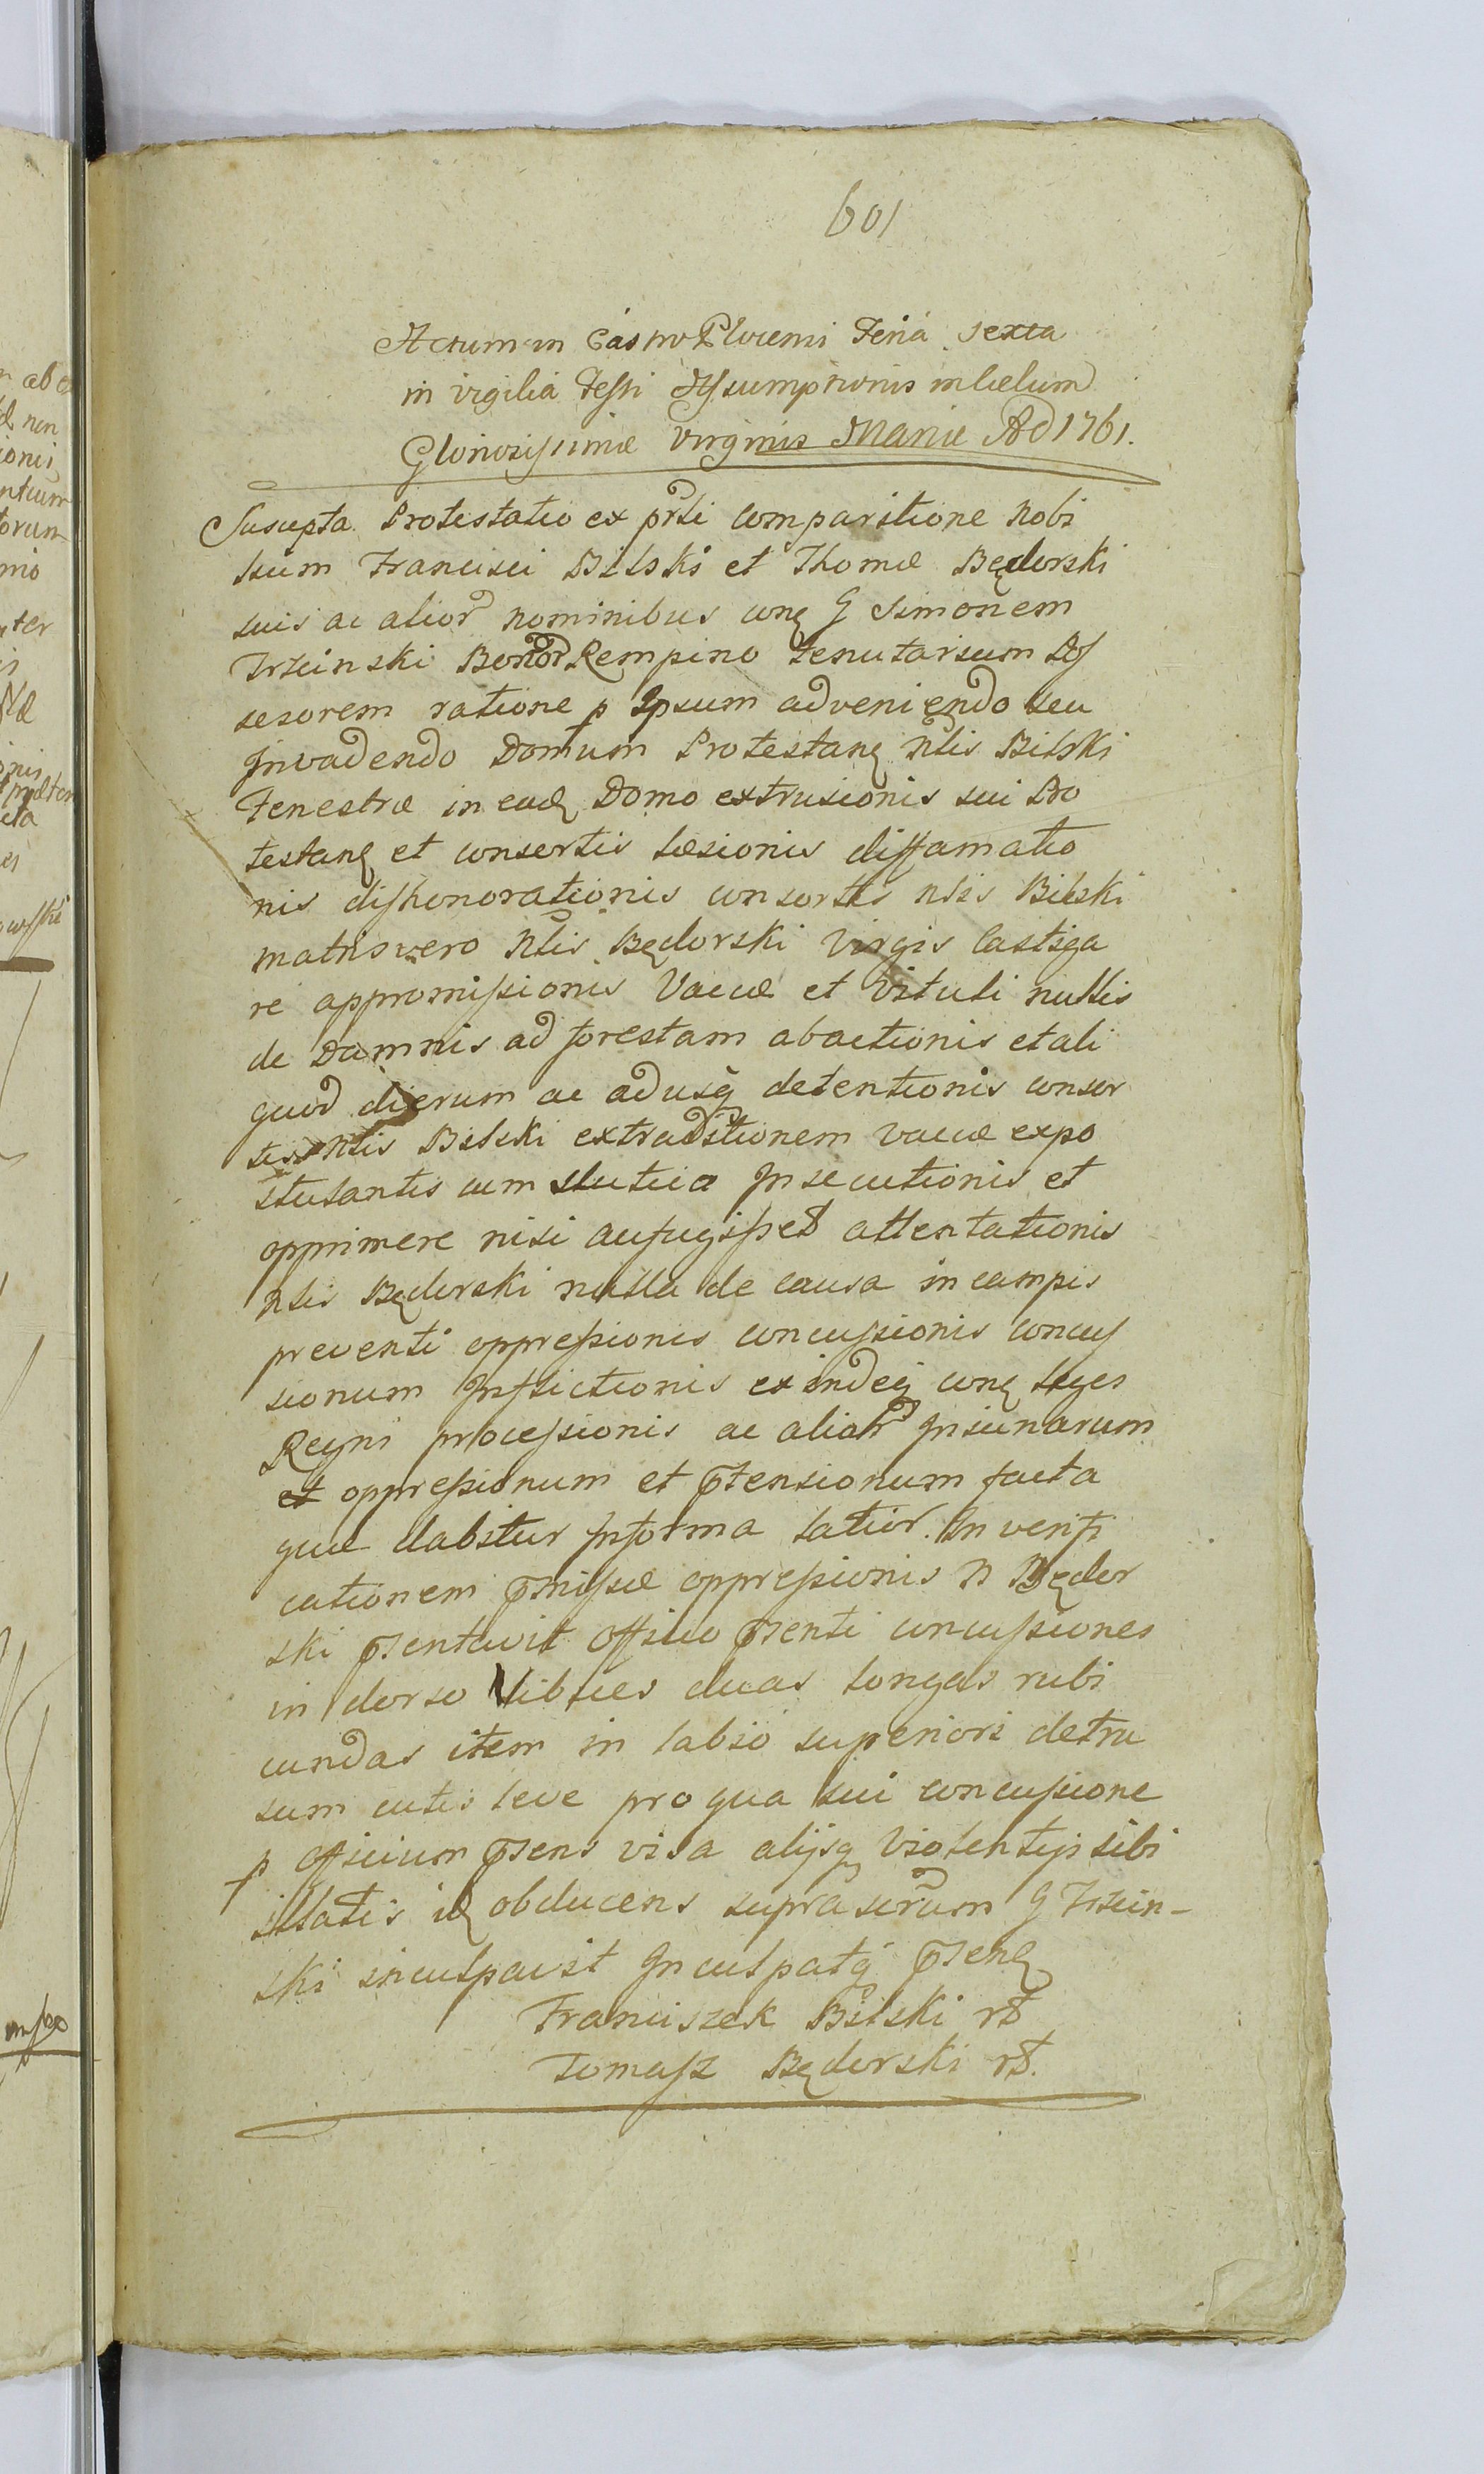 601
Actum in Castro Plocensi Feria sexta
in vigilia Festi Assumptionis in Cælum
Gloriosissimæ Virginis Mariæ AD 1761.
Suscepta Protestatio ex prsli comparitione Nobi
lium Francisci Bilski et Thomæ Będorski
suis ac alior nominibus conq G Simonem
Trzcinski Bonor Rempino tenutarium Pos
sesorem ratione p Ipsum adveniendo seu
Invadendo Domum Protestanq Nlis Bilski
Fenestræ in eadq Domo extrusionis sui Pro
testanq et consortis læsionis diffamatio
nis dishonorationis consortis Nlis Bilski
matris vero Nlis Będorski Virgis Castiga
re appromissionis Vaccæ et Vituli nullis
de Damnis ad forestam abactionis et ali
quod dierum ac adusq detentionis consor
tis Nlis Bilski extraditionem vaccæ expo
stulantis cum scutica Insecutionis et
opprimere nisi aufugisset attentationis
Nlis Będorski nulla de causa in campis
preventi oppressionis concussionis concus
sionum Inflictionis exindeq conq leges
Regni processionis ac aliar Iniuriarum
et oppressionum et ptensionum facta
quæ dabitur Informa latior. In verifi
cationem pmissæ oppressionis N Będor
ski psentavit Officio psenti concussiones
in dorso Vibices duas longas rubi
cundas item in labio superiori detru
sum cutis leve pro qua sui concussione
p Officium psens visa alijsq Violentijs sibi
illatis idq obducens suprascrum G Trzcin-
ski inculpavit Inculpatq psenq
Franciszek Bilski rż
Tomasz Będorski rż.